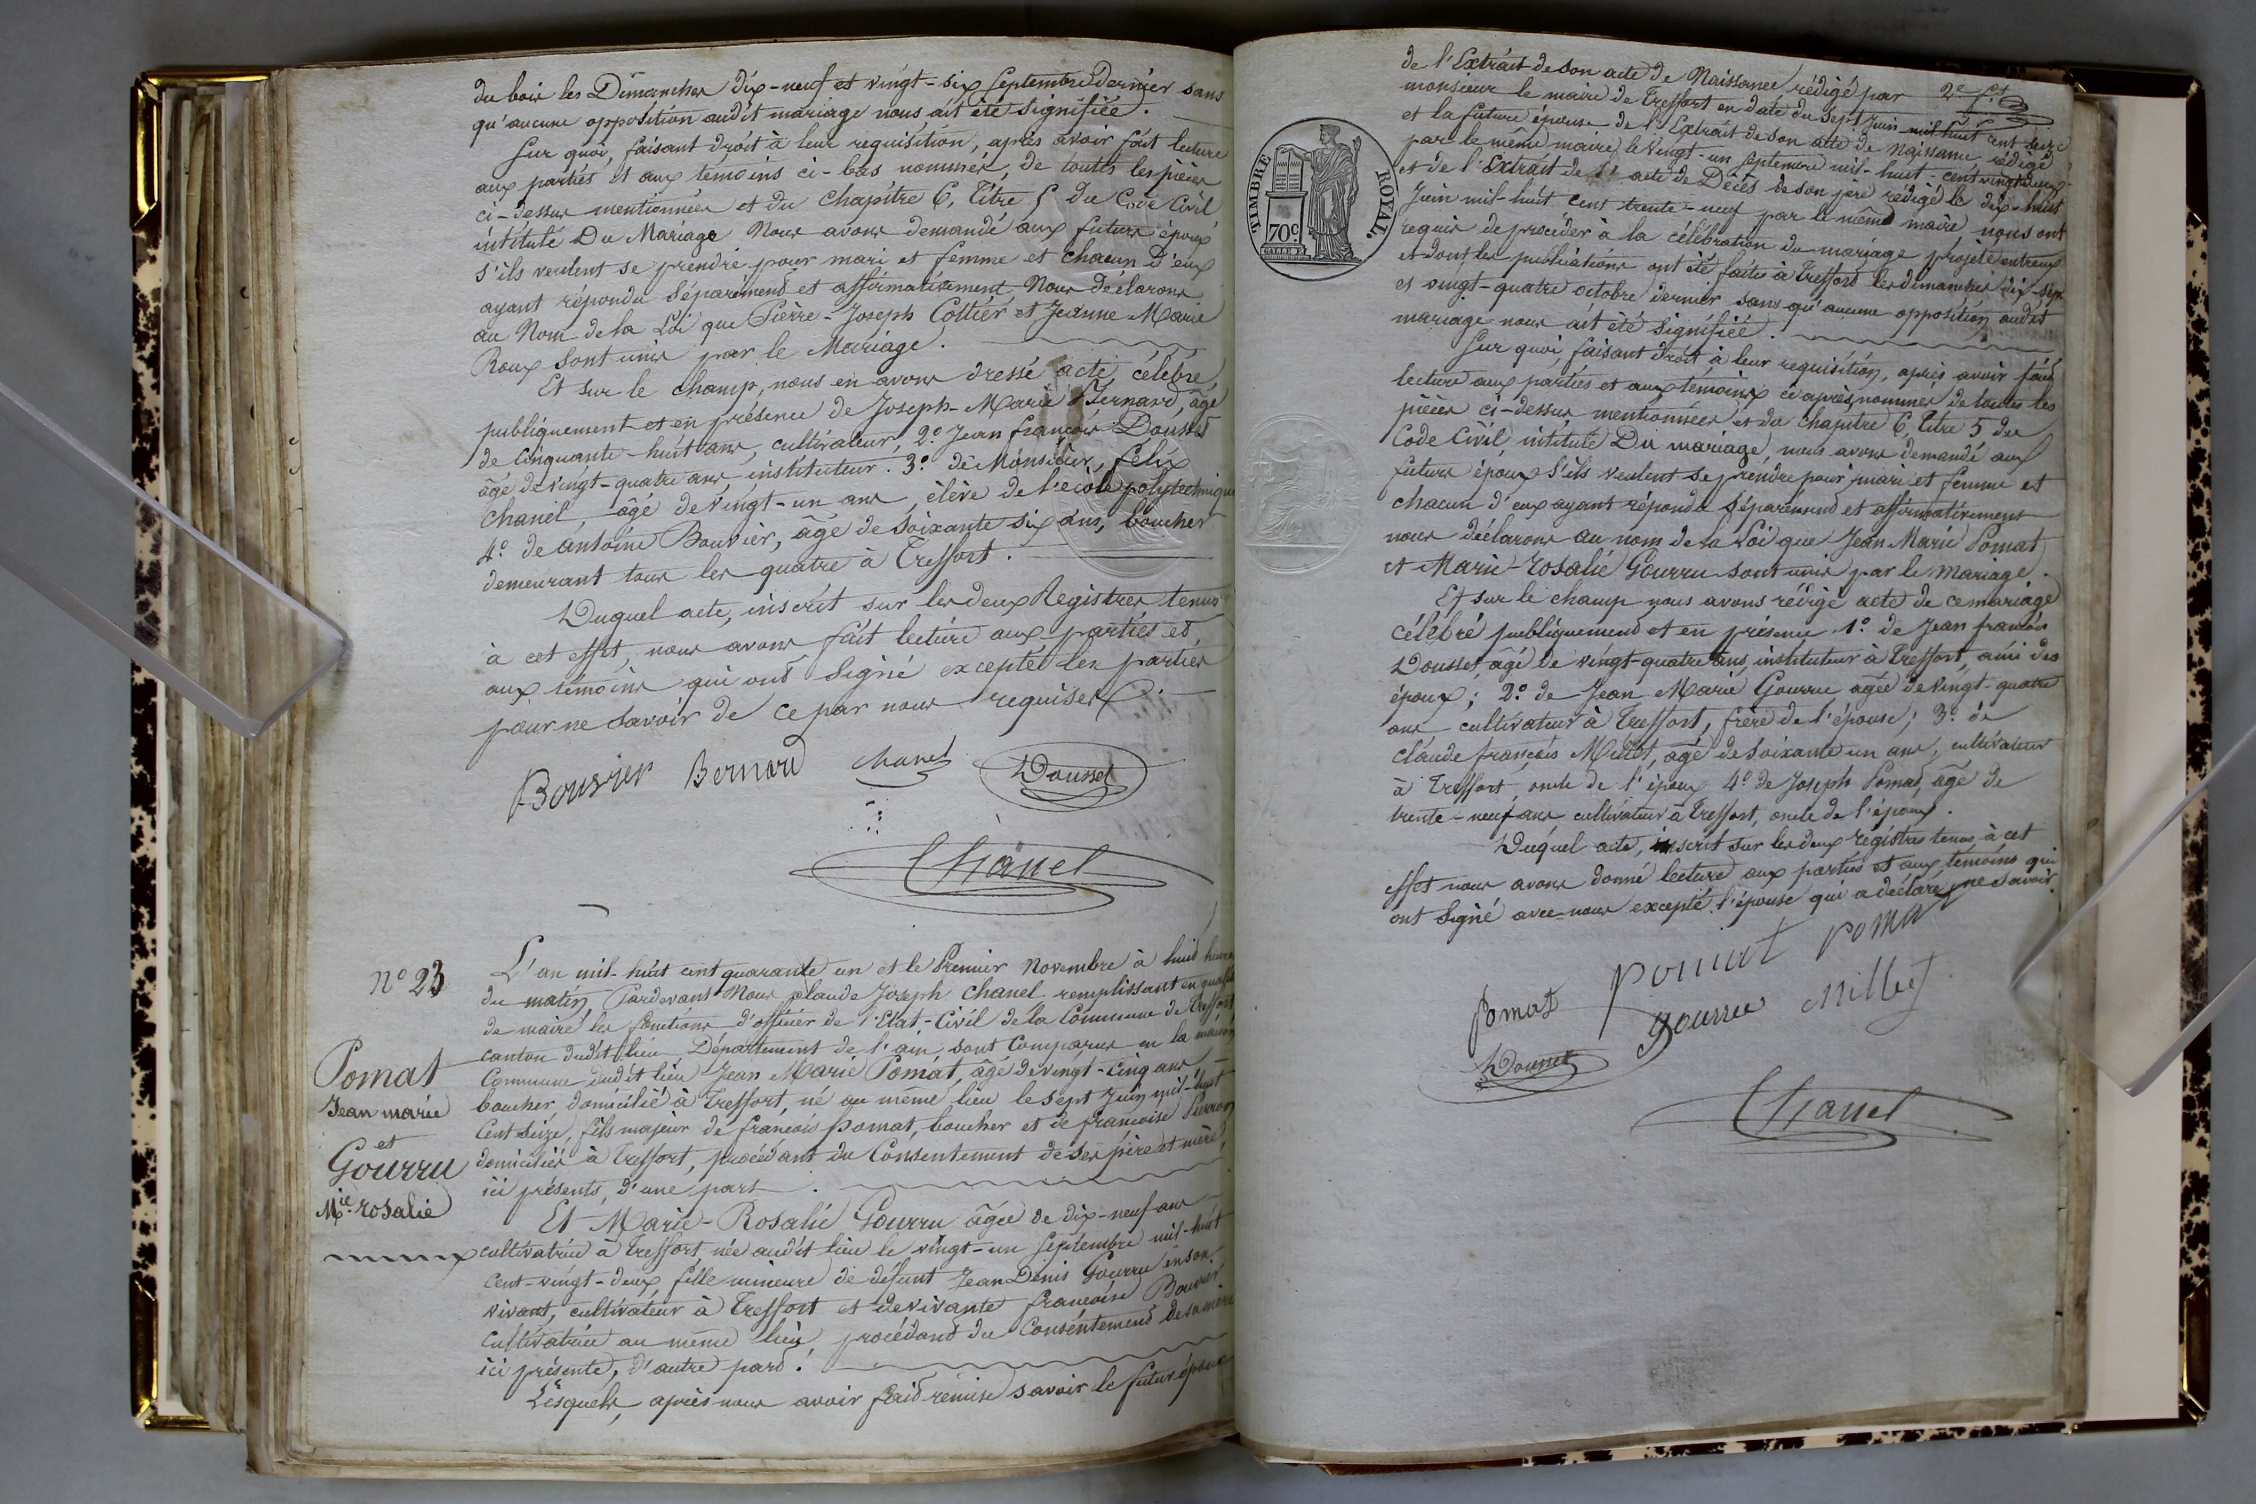 du bois les Dimanches dix-neuf et vingt-six Septembre dernier sans
qu'aucune opposition audit mariage nous ait été signifiée.
Sur quoi, faisant droit à leur requisition, après avoir fait lecture
aux parties et aux témoins ci-bas nommés, de toutes les pièces
ci-dessus mentionnées et du chapitre 6, titre 5 du Code Civil
intitulé Du Mariage Nous avons demandé aux futurs époux
s'ils veulent se prendre pour mari et femme et chacun d'eux
ayant répondu séparément et affirmativement, Nous déclarons
au Nom de la Loi que Pierre-Joseph Cottier et Jeanne Marie
Roux sont unis par le Mariage.
Et sur le champ, nous en avons dressé acte, célébré
publiquement et en présence de Joseph-Marie Bernard, âgé
de cinquante-huit ans, cultivateur, 2º Jean françois Dousset
âgé de vingt-quatre ans, instituteur. 3º de Monsieur, félix
chanel, âgé de vingt-un ans, élève de l'école polytechnique
4º de antoine Bouvier, âgé de soixante six ans, boucher
demeurant tous les quatre à Treffort.
Duquel acte, inscrit sur les deux Registres tenus
à cet effet, nous avons fait lecture aux parties et,
aux témoins qui ont signé excepté les parties
pour ne savoir de ce par nous requises.
Bouvier Bernard chanel Dousset
Chanel
Nº 23
L'an mil-huit cent quarante un et le Premier Novembre à huit heures
du matin, Pardevant Nous claude Joseph chanel remplissant en qualité
de maire les fonctions d'officier de l'Etat-Civil de la Commune de Treffort
canton dudit lieu, Département de l'ain, sont comparus en la maison
Commune dudit lieu Jean Marie Pomat, âgé de vingt-cinq ans
boucher domicilié à Treffort, né au même lieu le sept Juin mil-huit
Cent seize, fils majeur de françois pomat, boucher et de françoise
domiciliés à Treffort, procédant du Consentement de ses père et mère,
ici présents, d'une part.
Pomat
Jean marie
et
Gourru
Mie rosalie
Et Marie-Rosalie Gourru âgée de dix-neuf ans
cultivatrice à Treffort née audit lieu le vingt-un septembre mil-huit
cent-vingt-deux fille mineure de défunt Jean Denis Gourru en son
vivant, cultivateur à Treffort et de vivante françoise Bouvier
cultivatrice au même lieu, procédant du consentement de sa mère
ici présente, d'autre part.
Lesquels, après nous avoir fait remise savoir le futur époux
2e ft
de l'Extrait de son acte de Naissance rédigé par
monsieur le maire de Treffort en date du sept Juin mil huit cent seize
et la future épouse de l'Extrait de son acte de naissance rédigé
par le même maire, le vingt-un septembre mil-huit-cent vingt deux
et de l'Extrait de l'acte de Décès de son père rédigé le dix-huit
Juin mil-huit cent trente-neuf par le même maire nous ont
requis de procéder à la célébration du mariage projeté entr'eux
et dont les publications ont été faites à Treffort les dimanches dix-sept
et vingt-quatre octobre dernier sans qu'aucune opposition audit
mariage nous ait été signifiée.
TIMBRE ROYAL.
70c
Sur quoi, faisant droit à leur requisition, après avoir fait
lecture aux parties et aux témoins ci après nommés de toutes les
pièces ci-dessus mentionnées et du chapitre 6 titre 5 du
Code Civil, intitulé Du mariage, nous avons demandé aux
futurs époux s'ils veulent se prendre pour mari et femme et
chacun d'eux ayant répondu séparément et affirmativement
nous déclarons au nom de la Loi que Jean Marie Pomat
et Marie-Rosalie Gourru sont unis par le mariage.
Et sur le champ nous avons rédigé acte de ce mariage
célébré publiquement et en présence 1º de Jean françois
Dousset, âgé de vingt-quatre ans, instituteur à Treffort, ami des
époux; 2º de Jean Marie Gourru âgé de vingt-quatre
ans cultivateur à Treffort, frère de l'épouse; 3º de
claude françois Millet, âgé de soixante un ans, cultivateur
à Treffort, oncle de l'époux 4º de Joseph Pomat, âgé de
trente-neuf ans, cultivateur à Treffort, oncle de l'époux.
Duquel acte, inscrit sur les deux registres tenus à cet
effet nous avons donné lecture aux parties et aux témoins qui
ont signé avec-nous excepté l'épouse qui a déclaré ne savoir.
Pomat pomat pomat
gourru Millet
Dousset
Chanel